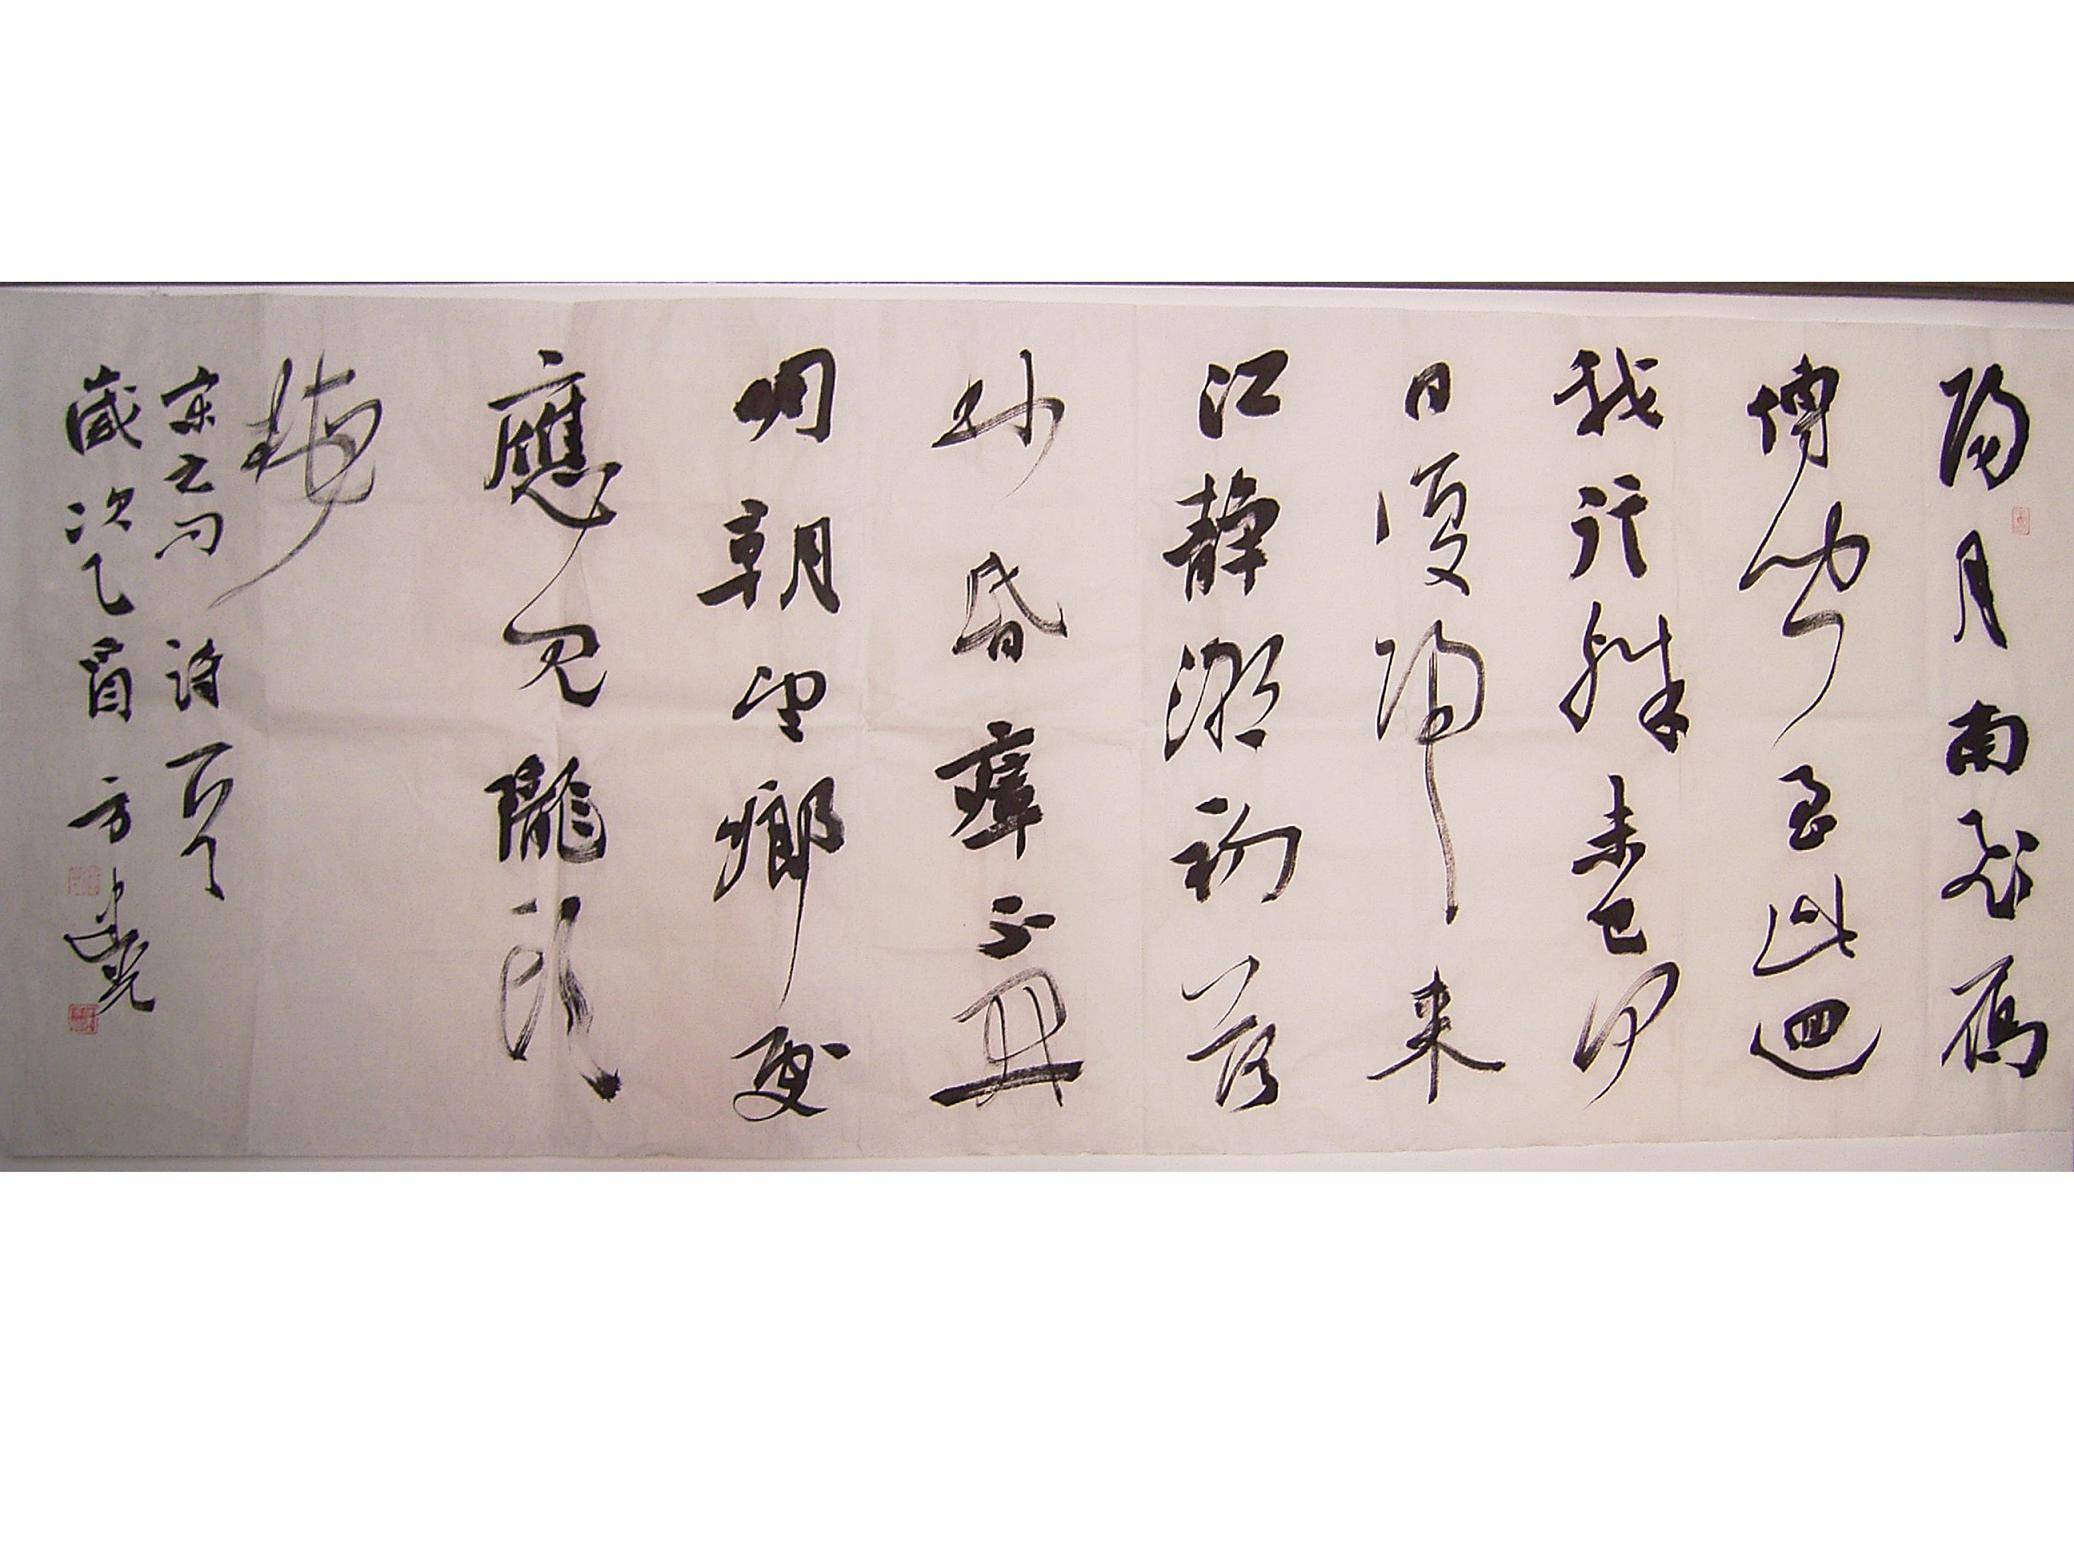 陽月南飛雁
傳聞至此迴
我行殊未已何
日復歸來
江靜潮初落
林昏瘴不開
明朝望鄉處
應見隴頭
梅
宋之問詩一首
歲次乙酉方